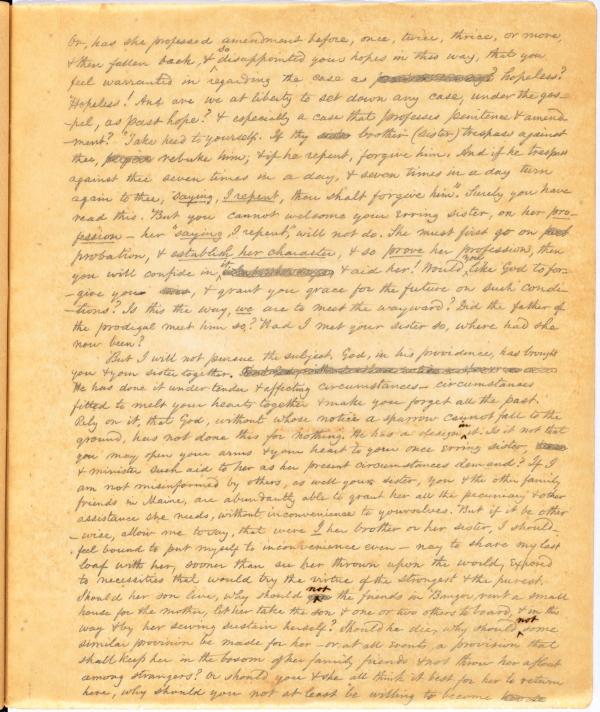 Or, has she professed amendment before, once, twice, thrice, or more,
& then fallen back, & so disappointed your hopes in this way, that you
feel warranted in regarding the case as hopeless?
"Hopeless! And are we at liberty to set down any case, under the gos-
-pel, as past hope? & especially a case that professes penitence & amend-
-ment? "Take heed to yourself. If thy brother (sister) trespass against
thee, rebuke him; & if he repent, forgive him. And if he trespass
against thee seven times in a day, & seven times in a day turn
again to thee, saying, I repent, thou shalt forgive him". Surely you have
read this. But you cannot welcome your erring sister, on her pro-
fession — her "saying, I repent," will not do. She must first go on
probation, & establish her character, & so prove her profession, then
you will confide in it, & aid her! Would you like God to for-
-give you, & grant you grace for the future on such condi-
-tions? Is this the way, we are to meet the wayward? Did the father of
the prodigal meet him so? Had I met your sister so, where had she
now been?
But I will not pursue the subject. God, in his providence, has brought
you & your sister together.
He has done it under tender & affecting circumstances — circumstances
fitted to melt your hearts together & make you forget all the past.
Rely on it, that God, without whose notice a sparrow cannot fall to the
ground, has not done this for nothing. He has a design in it. Is it not that
you may open your arms & your heart to your once erring sister,
& minister such aid to her as her present circumstances demand? If I
am not misinformed by others, as well your sister, you & the other family
friends in Maine, are abundantly able to grant her all the pecuniary & other
assistance she needs, without inconvenience to yourselves. But if it be other
-wise, allow me to say, that were I her brother or her sister, I should
feel bound to put myself to inconvenience even — nay to share my last
loaf with her, sooner than see her thrown upon the world, exposed
to necessities that would try the virtue of the strongest & the purest.
Should her son live, why should not the friends in Bangor rent a small
house for the mother, let her take the son & one or two others to board, & in this
way & by her sewing sustain herself? Should he die, why should not some
similar provision be made for her — or at all events, a provision that
shall keep her in the bosom of her family friends & not throw her afloat
among strangers? Or should you & she all think it best for her to return
here, why should you not at least be willing to become